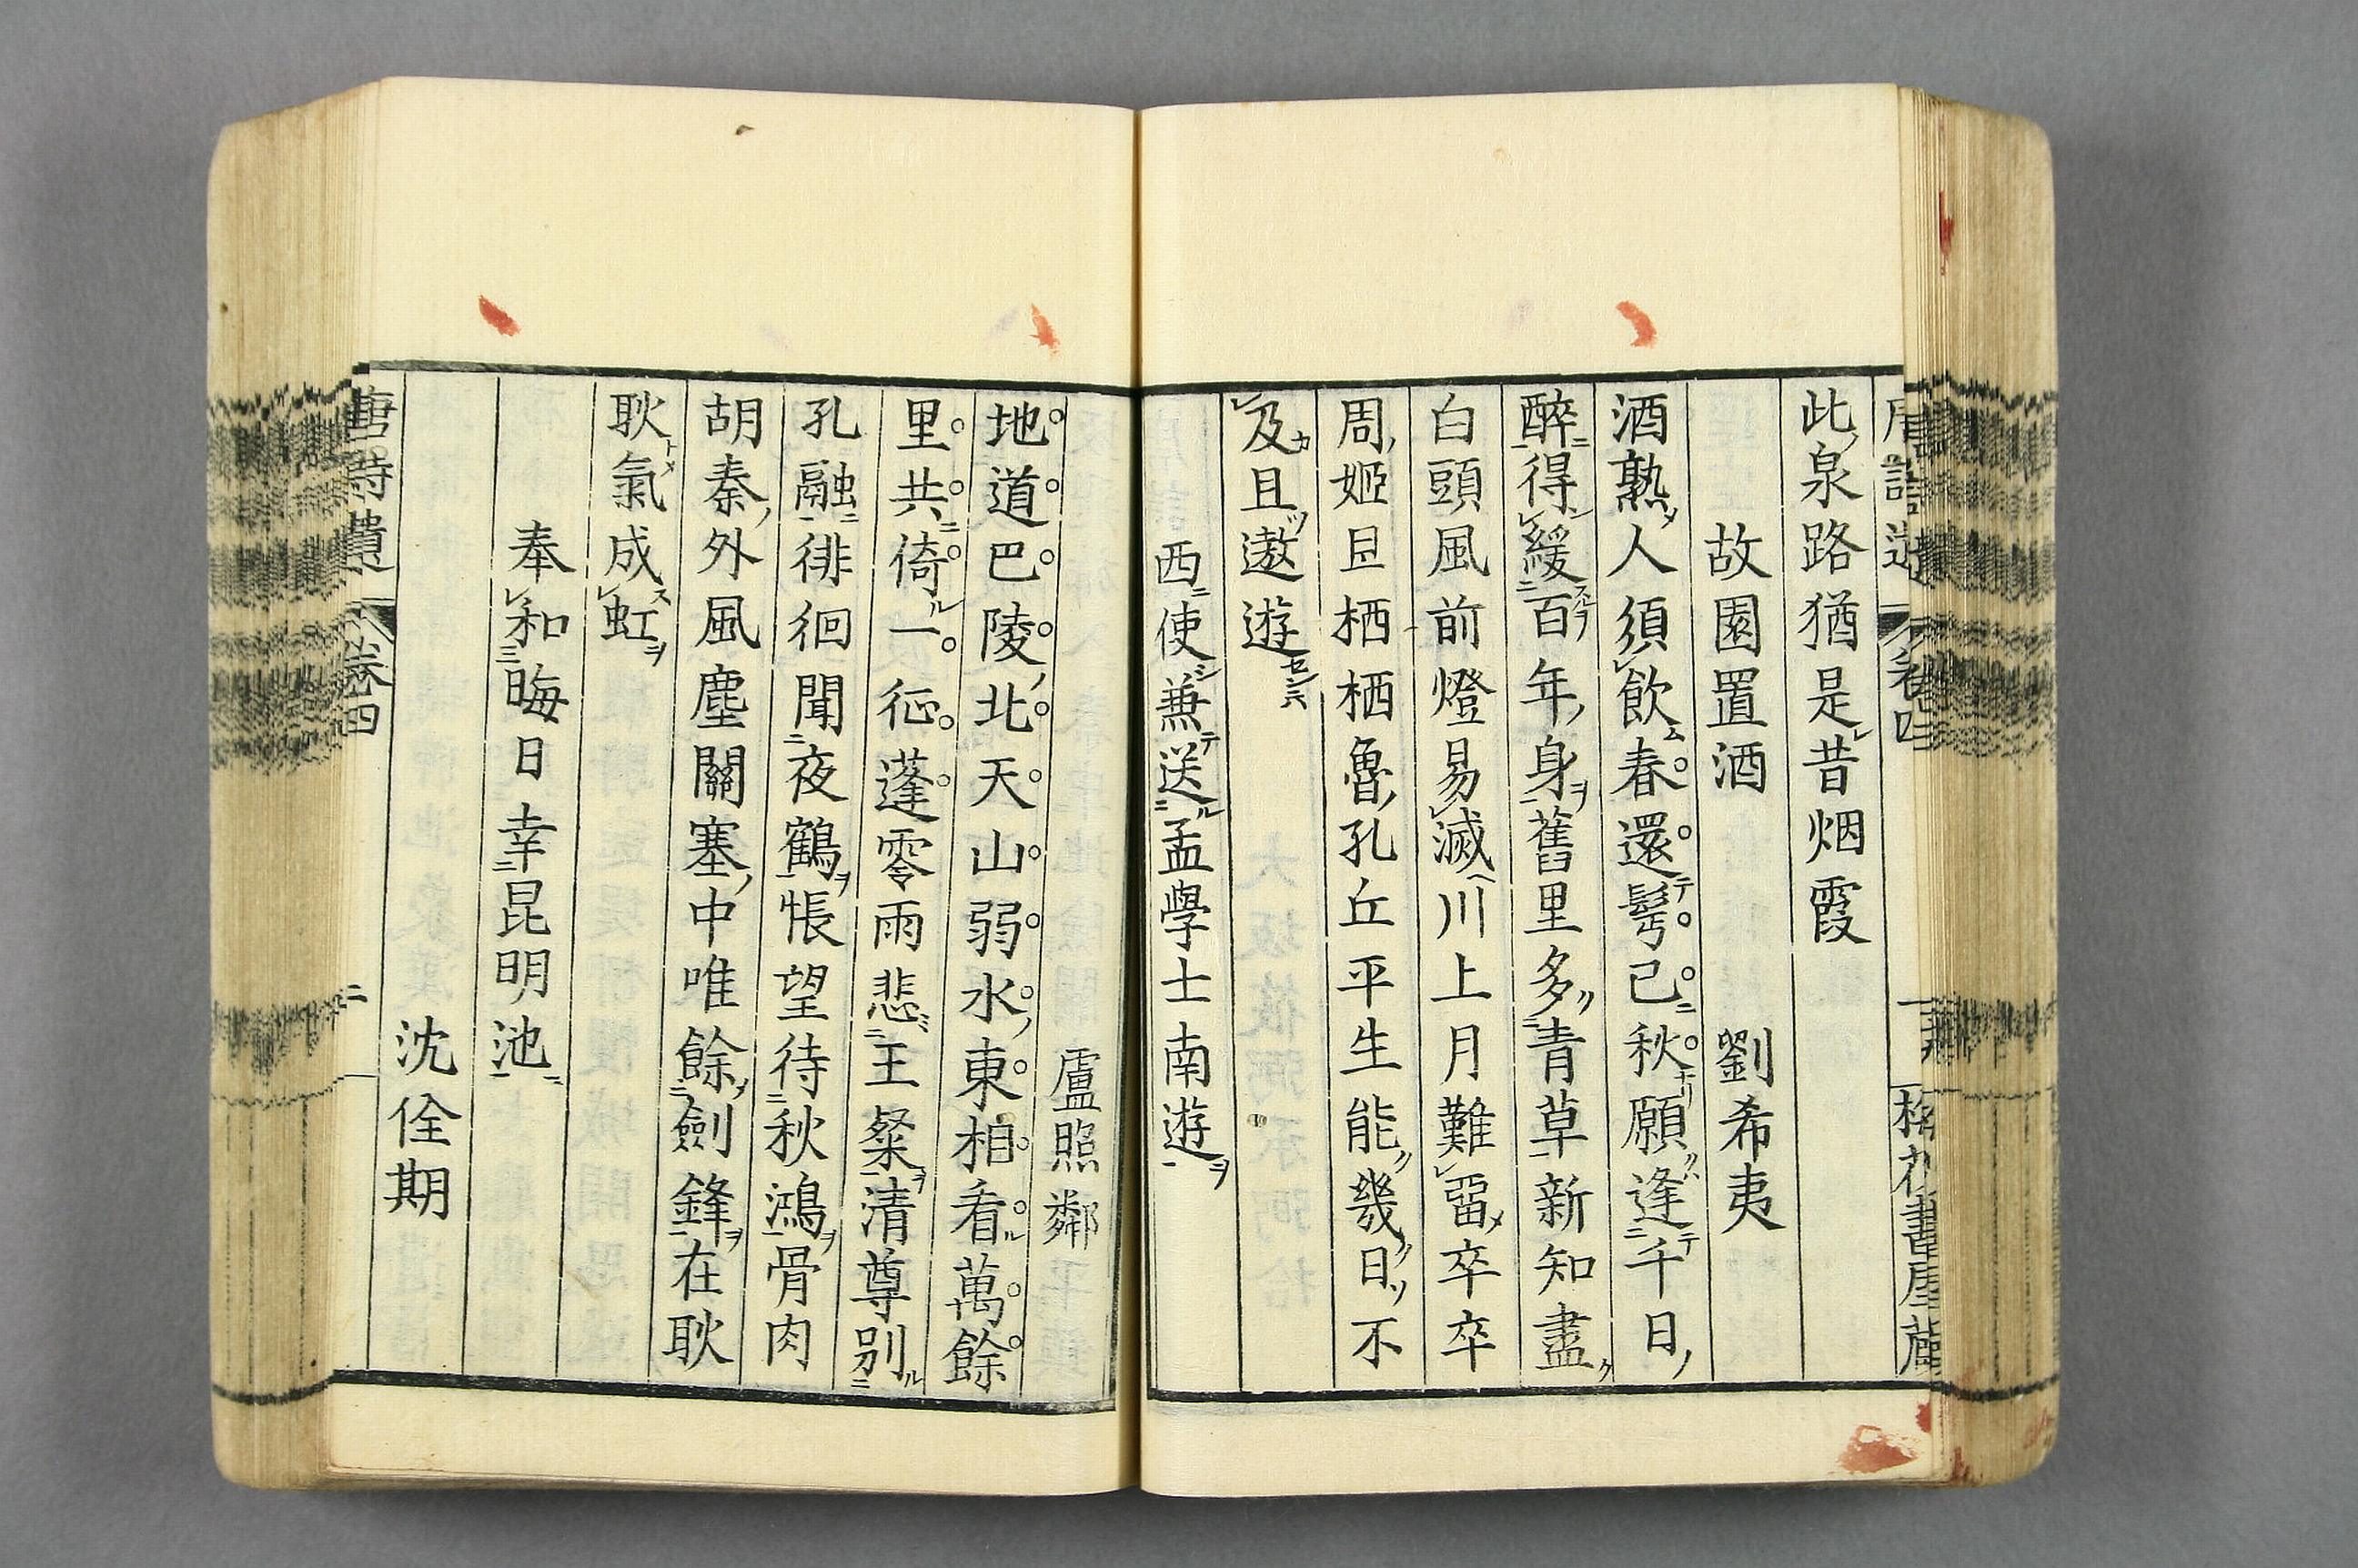 此泉路猶是昔烟霞
故園置酒
劉希夷
酒熟人須飲春還鬢已秋願逢千日
醉得緩百年身舊里多青草新知盡
白頭風前燈易滅川上月難畱卒卒
周姬旦栖栖魯孔丘平生能幾日不
及且遨遊
西使兼送孟學士南遊
盧照鄰
地道巴陵北天山弱水東相看萬餘
里共倚一征蓬零雨悲王粲清尊別
孔融徘徊聞夜鶴悵望待秋鴻骨肉
胡秦外風塵關塞中唯餘劍鋒在耿
耿氣成虹
奉和晦日幸昆明池
沈佺期
唐詩 卷四